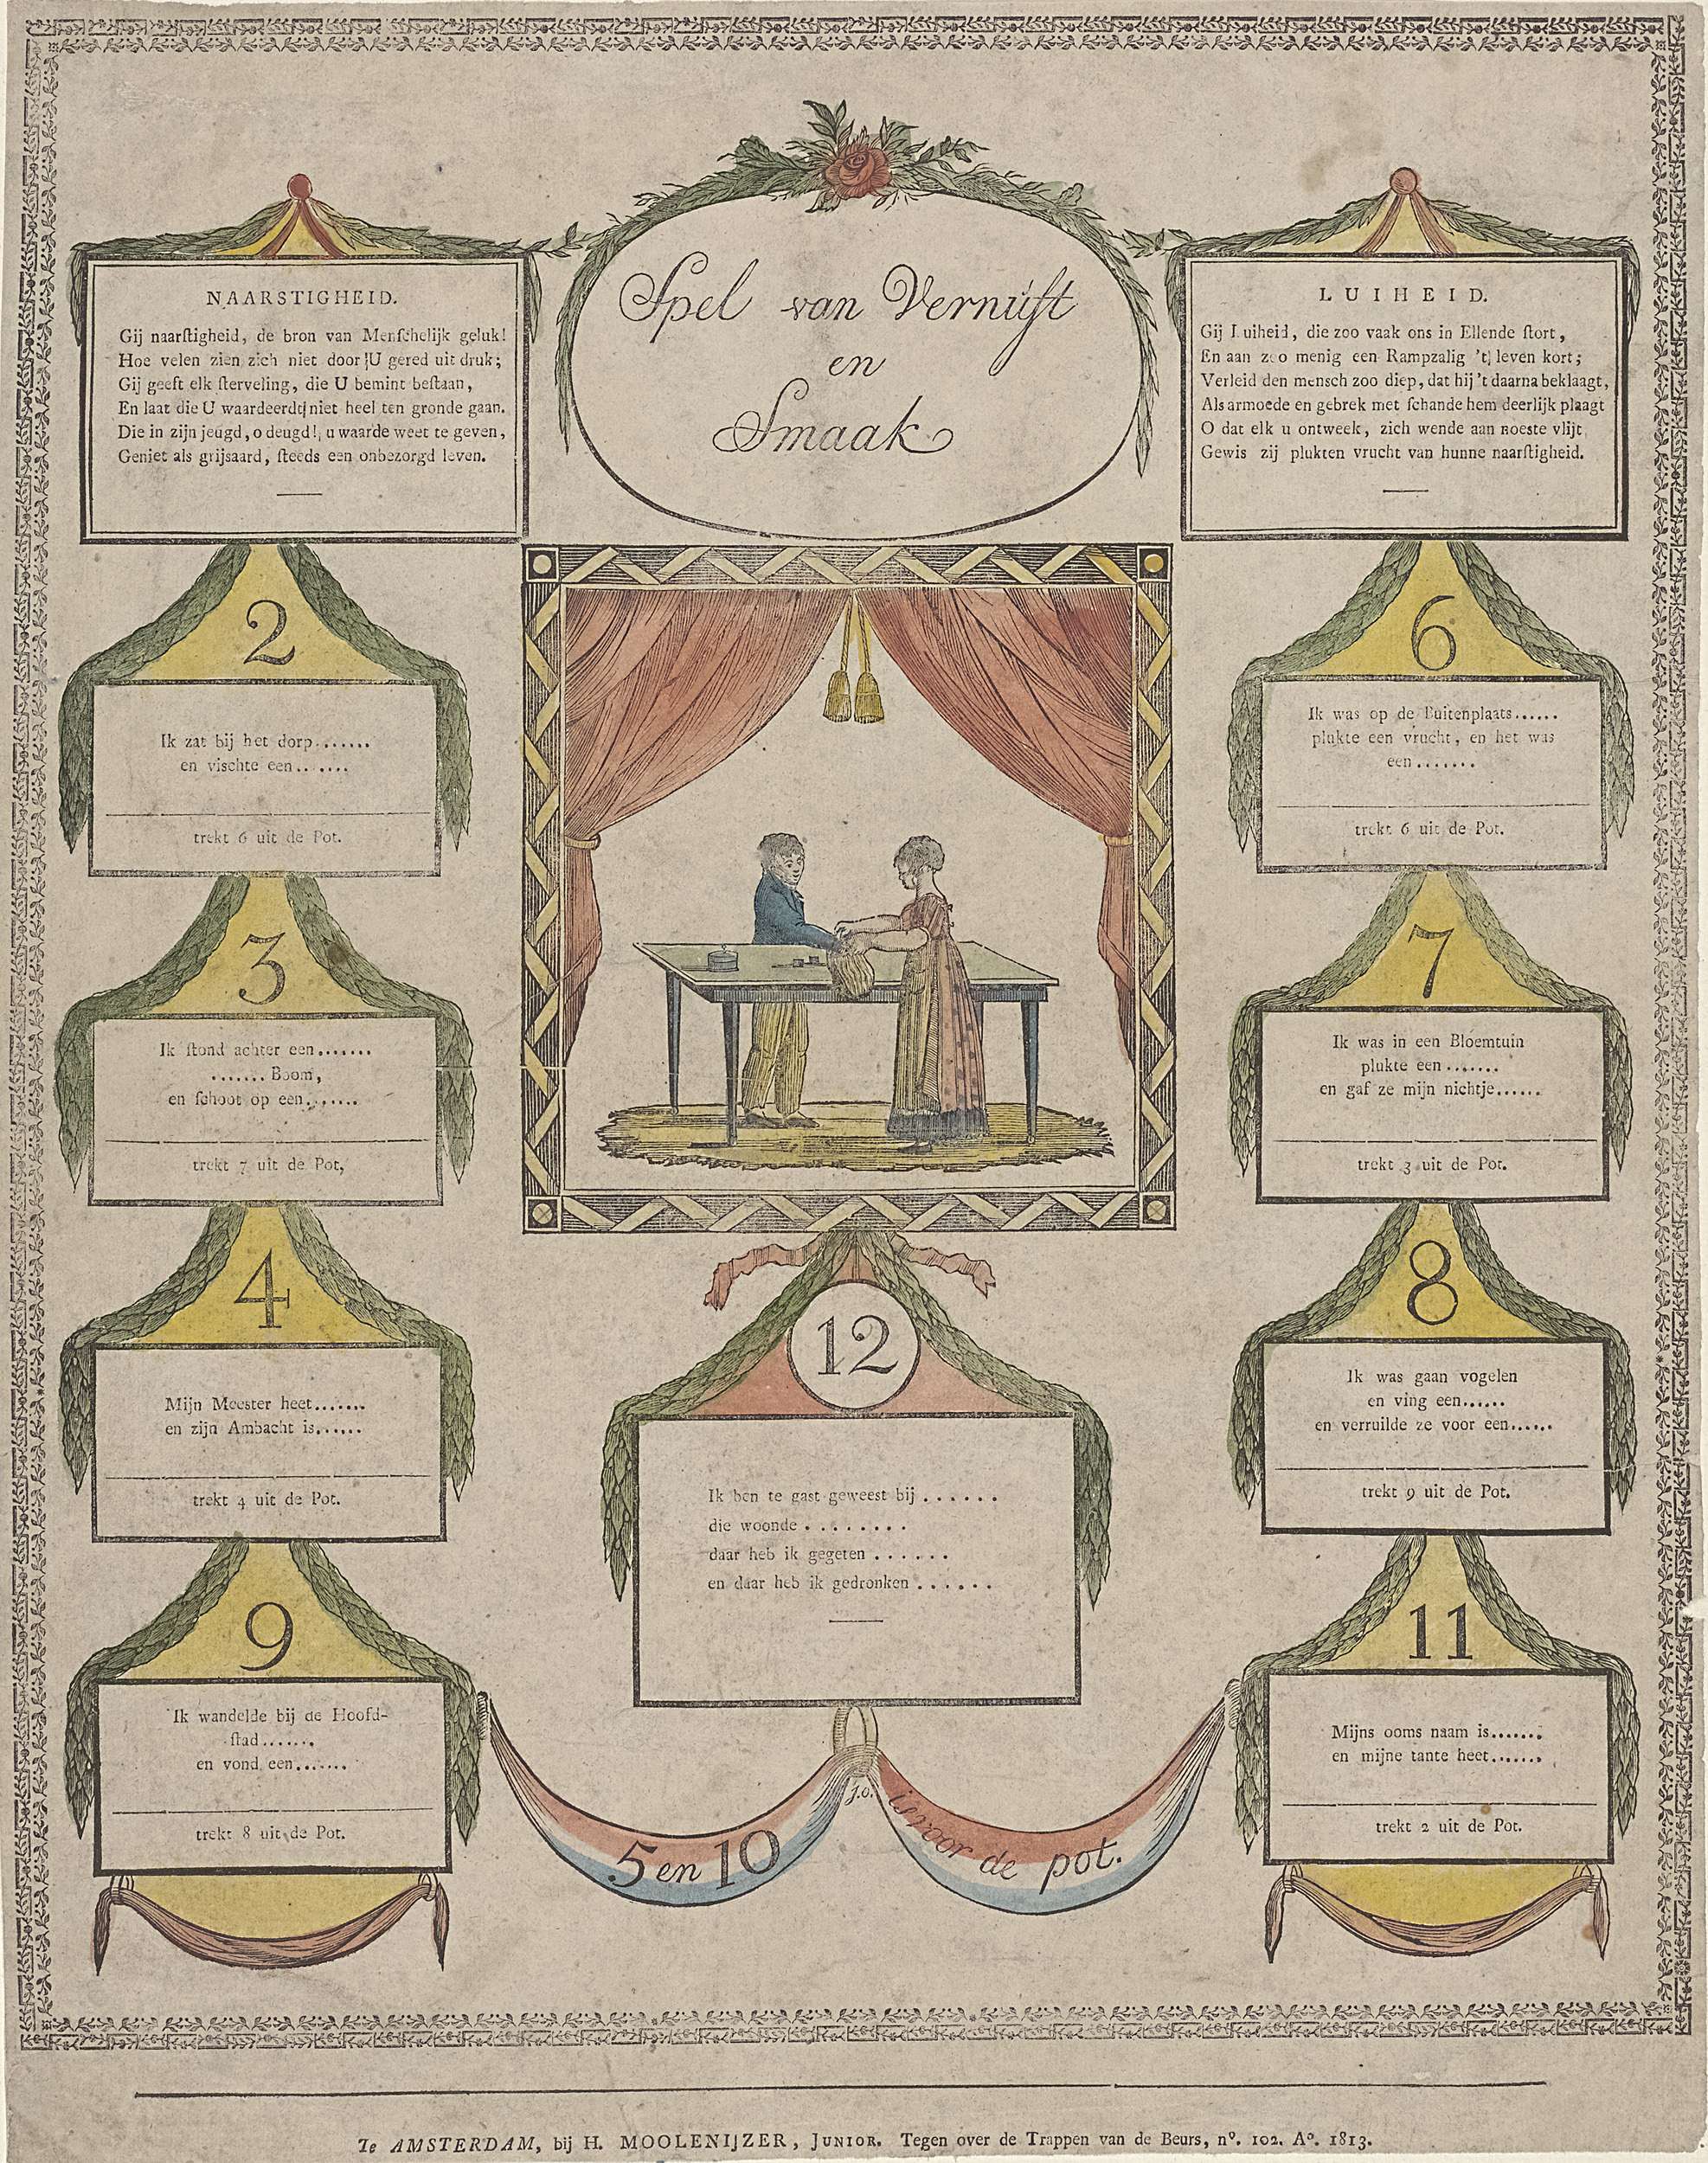 Spel van Vernuft
en
Smaak
NAARSTIGHEID.
Gij naarſtigheid, de bron van Menſchelijk geluk!
Hoe velen zien zich niet door U gered uit druk;
Gij geeft elk ſterveling, die U bemint beſtaan,
En laat die U waardeerdt niet heel ten gronde gaan.
Die in zijn jeugd, o deugd!, u waarde weet te geven,
Geniet als grijsaard, ſteeds een onbezorgd leven.
LUIHEID.
Gij Luiheid, die zoo vaak ons in Ellende ſtort,
En aan zoo menig een Rampzalig 't leven kort;
Verleid den mensch zoo diep, dat hij 't daarna beklaagt,
Als armoede en gebrek met ſchande hem deerlijk plaagt
O dat elk u ontweek, zich wende aan noeste vlijt
Gewis zij plukten vrucht van hunne naarſtigheid.
2
Ik zat bij het dorp.......
en vischte een.......
trekt 6 uit de Pot.
3
Ik ſtond achter een.......
....... Boom,
en ſchoot op een.......
trekt 7 uit de Pot,
4
Mijn Meester heet.......
en zijn Ambacht is......
trekt 4 uit de Pot.
9
Ik wandelde bij de Hoofd-
ſtad.......
en vond een.......
trekt 8 uit de Pot.
6
Ik was op de Buitenplaats......
plukte een vrucht, en het was
een.......
trekt 6 uit de Pot.
7
Ik was in een Bloemtuin
plukte een.......
en gaf ze mijn nichtje......
trekt 3 uit de Pot.
8
Ik was gaan vogelen
en ving een......
en verruilde ze voor een......
trekt 9 uit de Pot.
11
Mijns ooms naam is.......
en mijne tante heet.......
trekt 2 uit de Pot.
12
Ik ben te gast geweest bij ......
die woonde ........
daar heb ik gegeten ......
en daar heb ik gedronken ......
J.O.
5 en 10 is voor de pot.
Te AMSTERDAM, bij H. MOOLENIJZER, JUNIOR. Tegen over de Trappen van de Beurs, nº. 102. Aº. 1813.